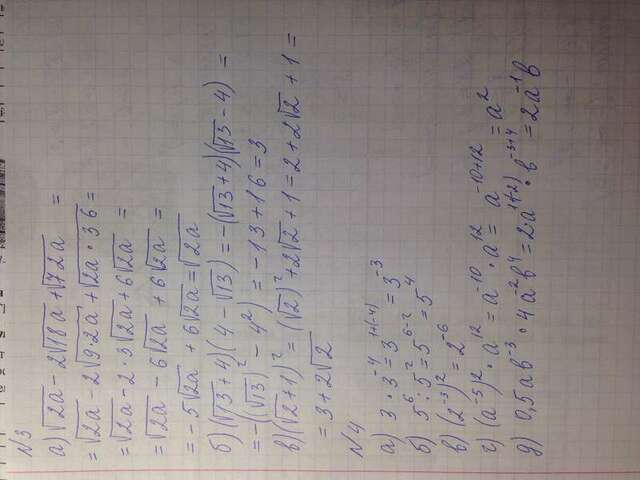 №3
а) √2a - 2√18a + √72a =
= √2a - 2√9·2a + √2a · 36 =
= √2a - 2 · 3√2a + 6√2a =
= √2a - 6√2a + 6√2a =
= -5√2a + 6√2a = √2a
б) (√13 + 4)(4 - √13) = -(√13 + 4)(√13 - 4) =
= -((√13)² - 4²) = -13 + 16 = 3
в) (√2 + 1)² = (√2)² + 2√2 + 1 = 2 + 2√2 + 1 =
= 3 + 2√2
№4
а) 3 · 3⁻⁴ = 3¹⁺⁽⁻⁴⁾ = 3⁻³
б) 5⁶ : 5² = 5⁶⁻² = 5⁴
в) (2⁻³)² = 2⁻⁶
г) (a⁻⁵)² · a¹² = a⁻¹⁰ · a¹² = a⁻¹⁰⁺¹² = a²
д) 0,5ab⁻³ · 4a⁻²b⁴ = 2·a¹⁺⁽⁻²⁾ · b⁻³⁺⁴ = 2a⁻¹b